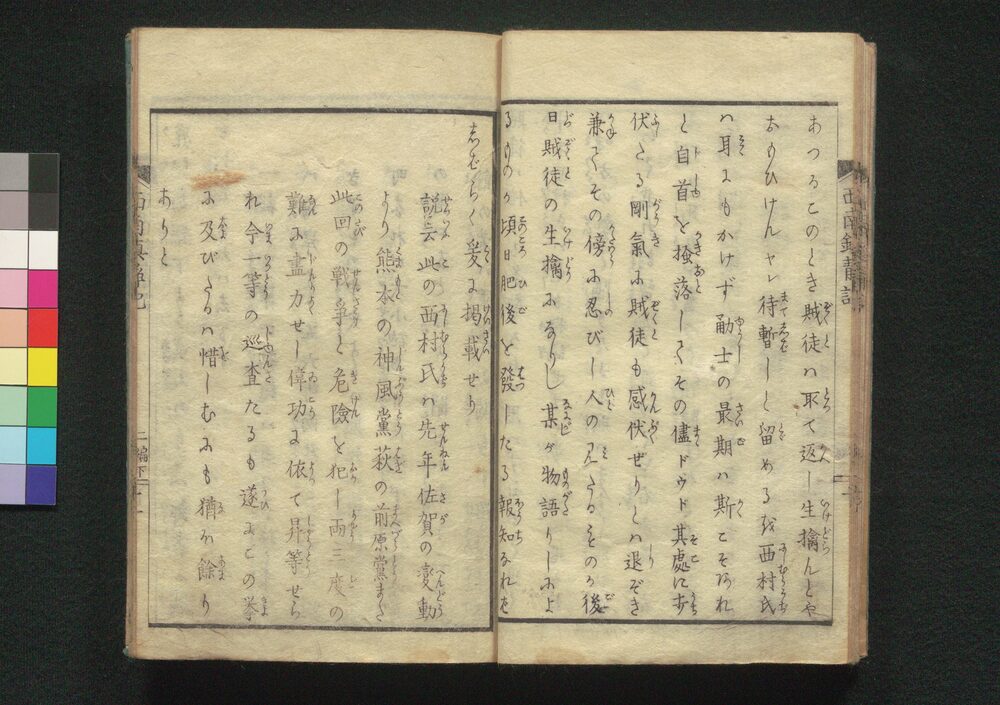 あつるこのとき賊徒ハ取て返し生擒んとや
おもひけんヤレ待暫しと留めるを西村氏
ハ耳にもかけず勇士の最期ハ斯こそあれ
と自首を掻落してその儘ドウド其處に打
伏たる剛氣に賊徒も感伏せりとハ退ぞき
兼てその傍に忍びし人の見たるそのか後
日賊徒の生擒になりし某が物語りしによ
るものか頃日肥後を發したる報知なれば
しばらく爰に掲載せり
説云此の西村氏ハ先年佐賀の変動
より熊本の神風黨萩の前原黨まで
此回の戦争と危險を犯し両三度の
難に盡力せし偉功に依て昇等せら
れ今一等の巡査たるも遂にこの挙
に及びたるハ惜しむにも猶ほ餘り
ありと
二編下